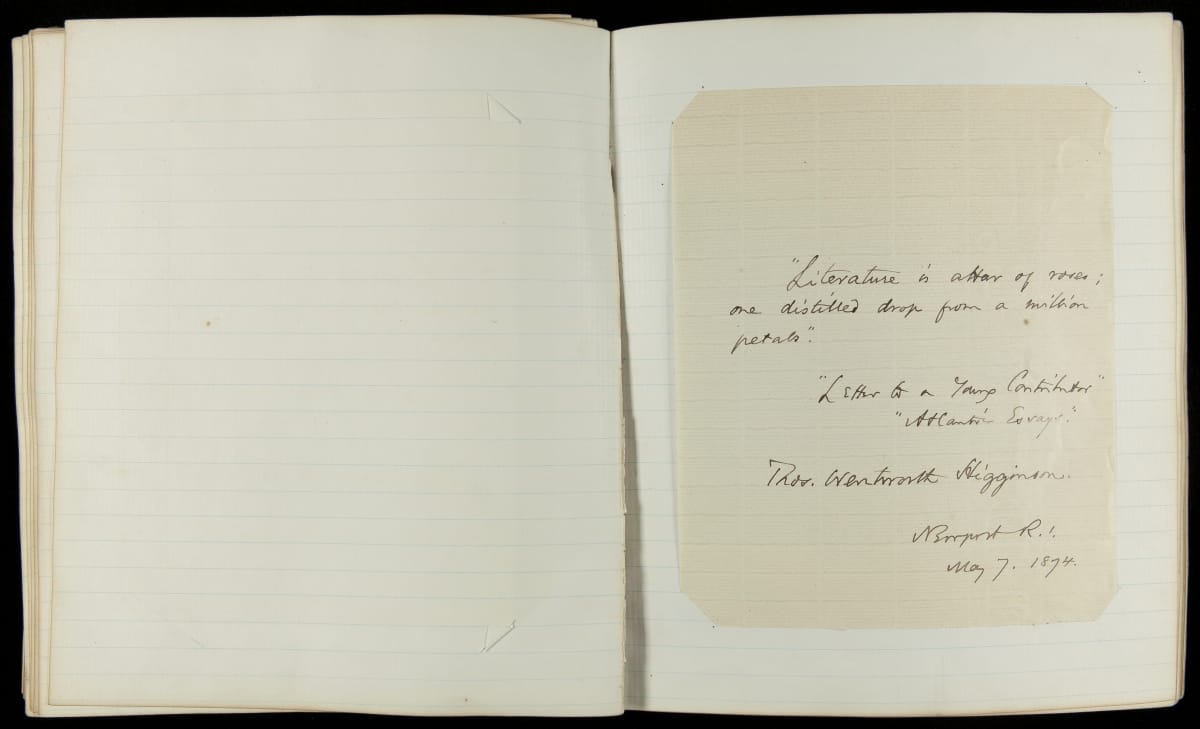 "Literature is attar of roses;
one distilled drop from a million
petals".
"Letter to a Young Contributor"
"Atlantic Essays."
Thos. Wentworth Higginson.
Newport R.I.
May 7. 1874.